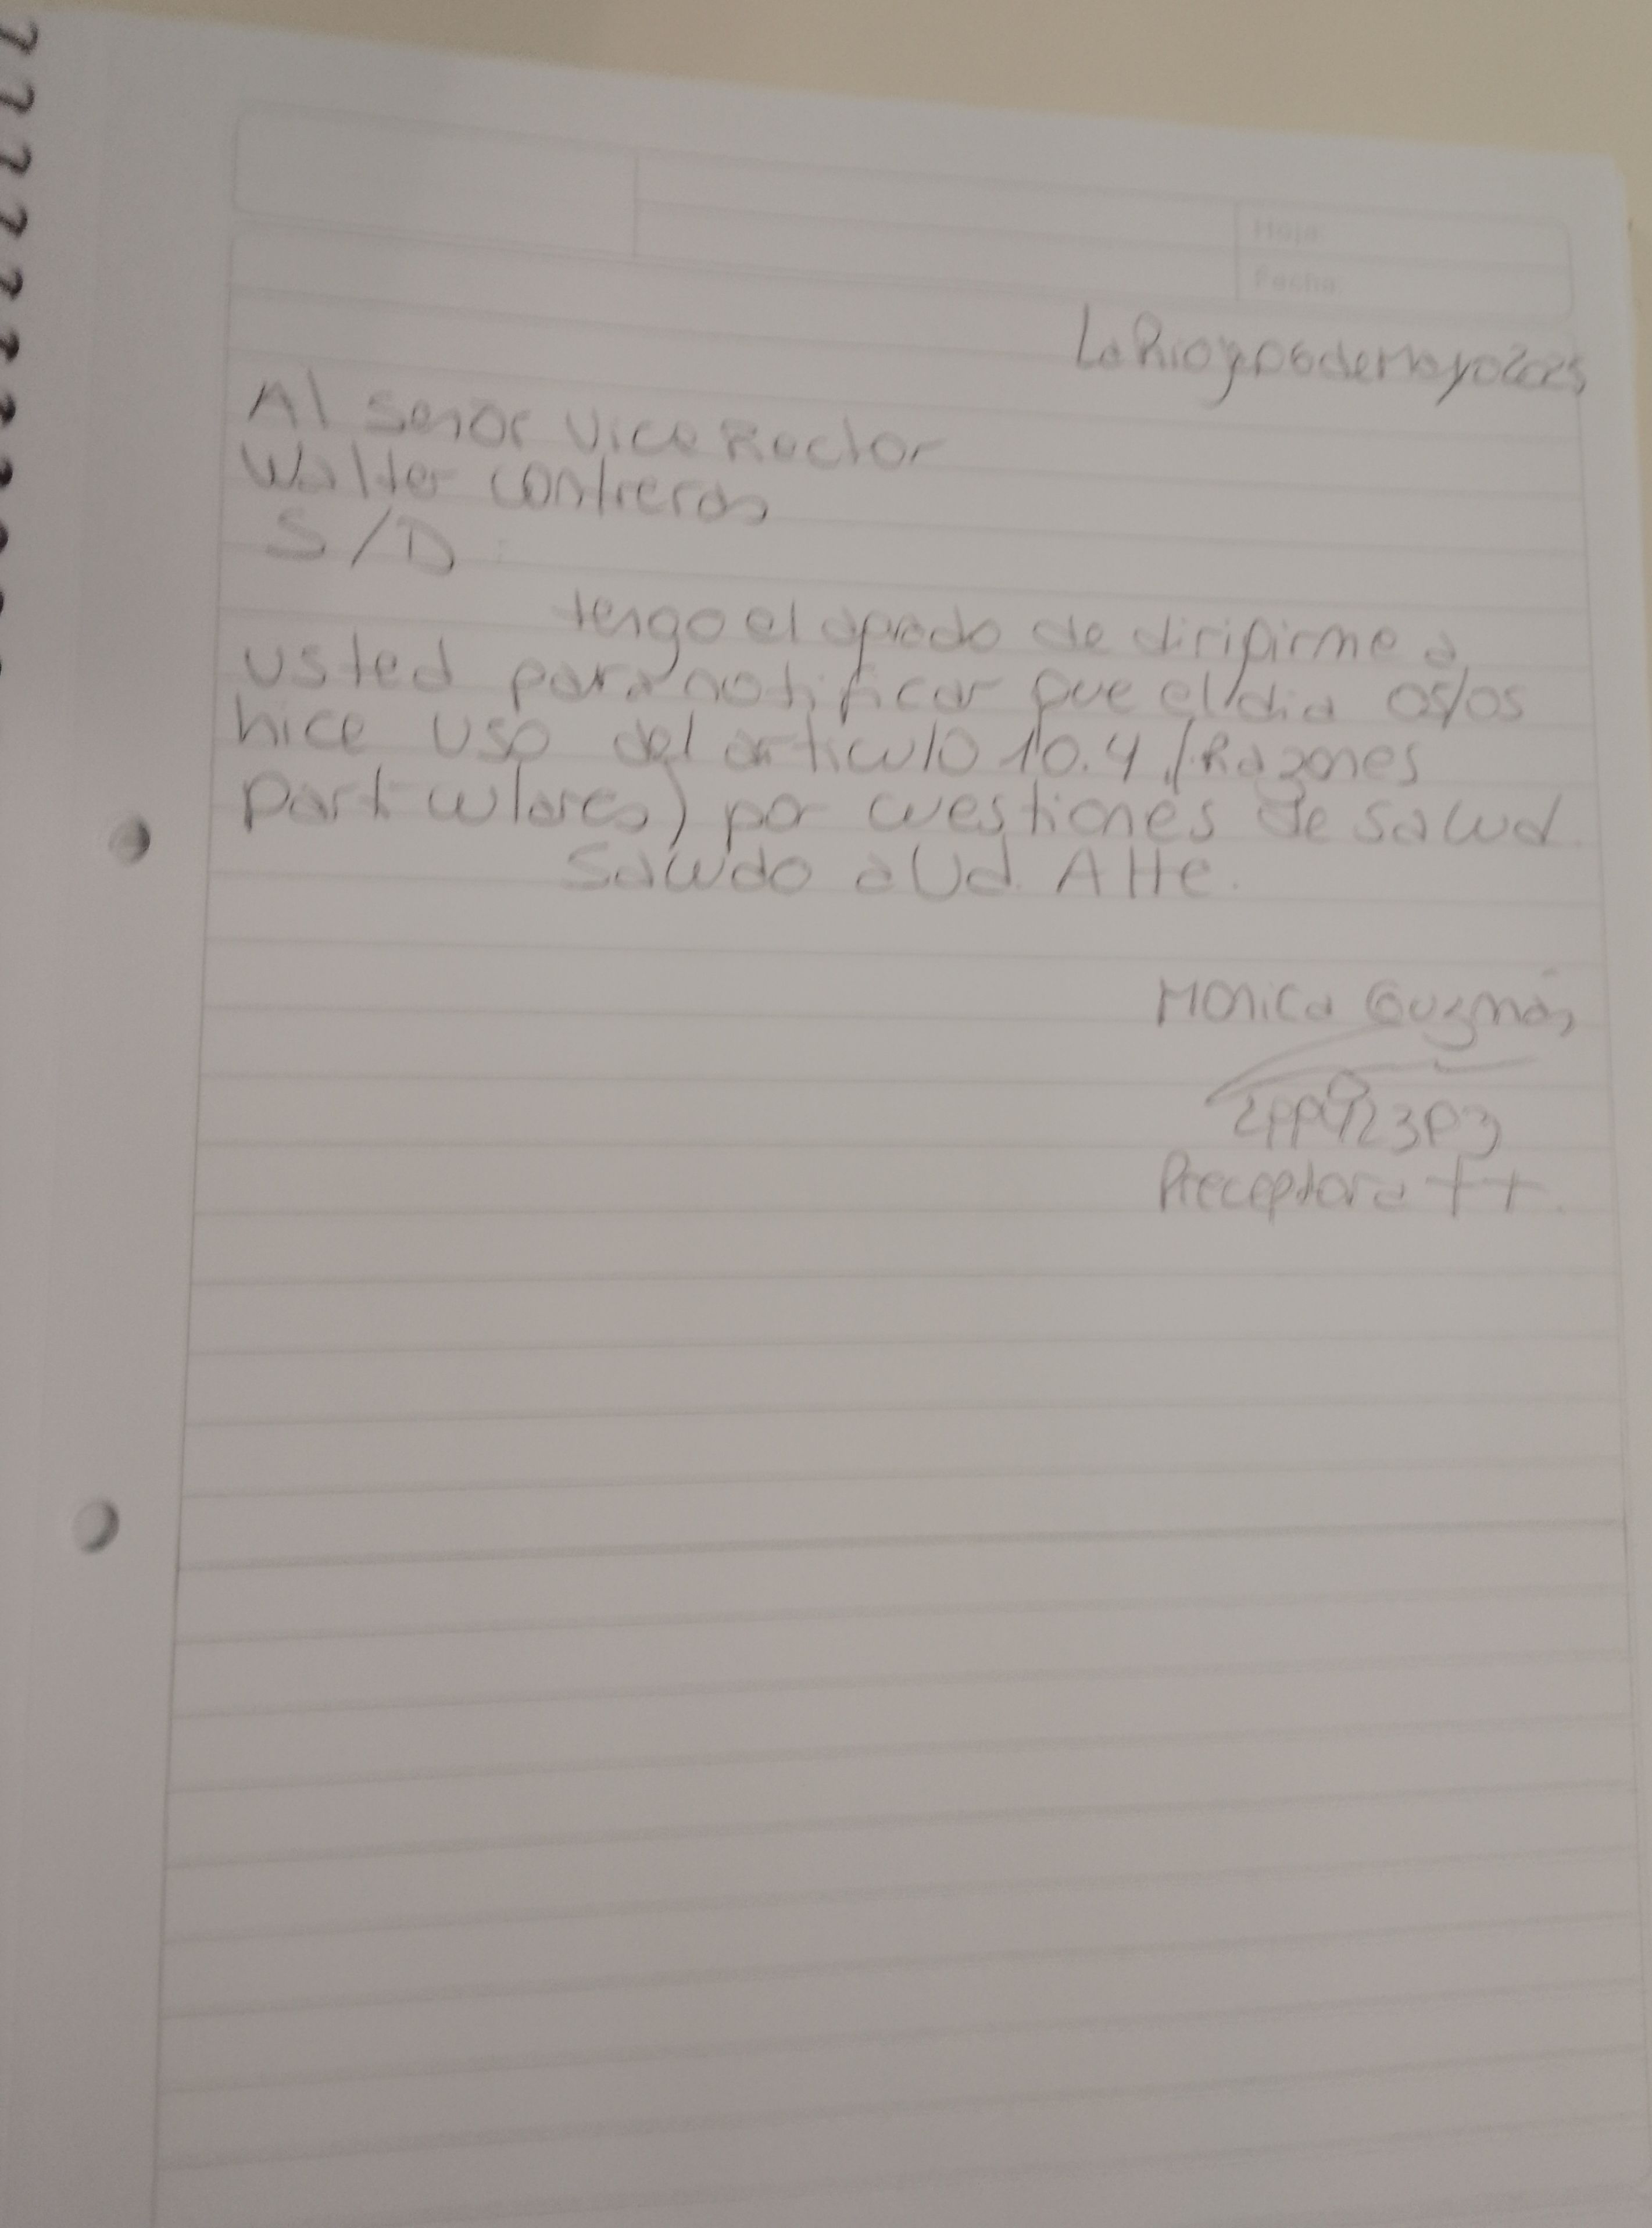 Hoja:
Fecha:
La Rioja 06 de Mayo 2025
Al señor Vice Rector
Walter Contreras
S/D:
tengo el agrado de dirigirme a
usted para notificar que el dia 05/05
hice uso del articulo 10.4 (Razones
particulares) por cuestiones de salud.
Saludo a Ud. Atte.
Monica Guzmán
Preceptora TT.